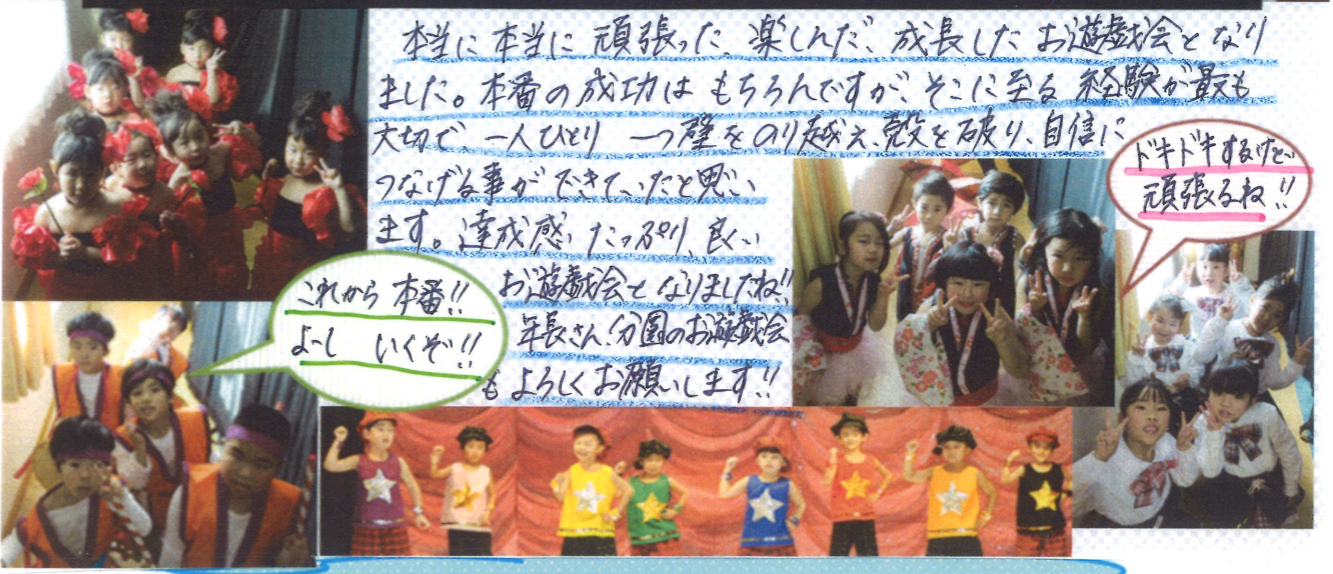 本当に本当に頑張った、楽しんだ、成長したお遊戯会となり
ました。本番の成功はもちろんですが、そこに至る経験が最も
大切で、一人ひとり一つ壁をのり越え、殻を破り、自信に
つなげる事ができていたと思い
ます。達成感たっぷり、良い
お遊戯会となりましたね!!
年長さん!分園のお遊戯会
もよろしくお願いします!!
ドキドキするけど
頑張るね!!
これから本番!!
よーし いくぞ!!